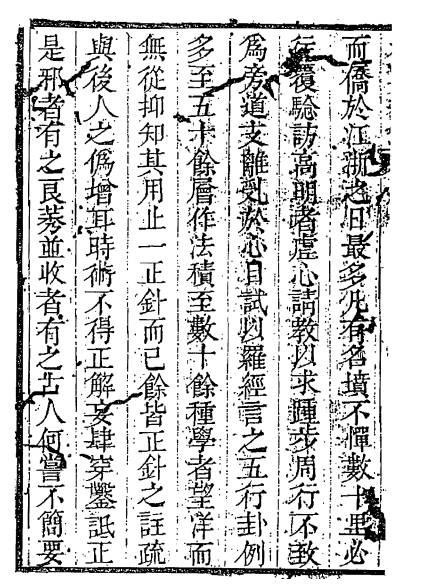 而僑於江浙之日最多凡有名墳不憚數十里必
往覆騐訪高明者虛心請教以求踵步周行不致
爲旁道支離亂於心目試以羅經言之五行卦例
多至五十餘層作法積至數十餘種學者望洋而
無從抑知其用止一正針而已餘皆正針之註疏
與後人之僞增耳時術不得正解妄肆穿鑿詆正
是邪者有之良莠並收者有之古人何嘗不簡要